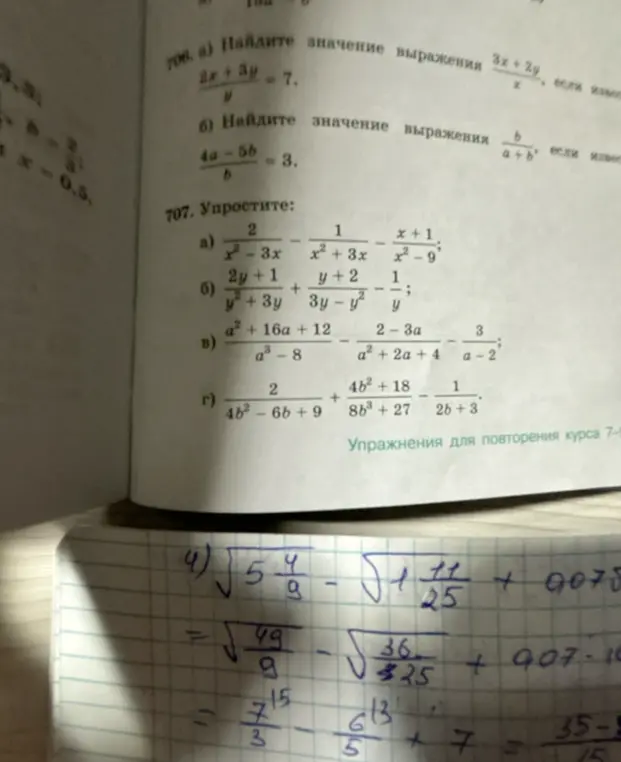 706. а) Найдите значение выражения (3x + 2y)/x, если
(2x + 3y)/y = 7.
б) Найдите значение выражения b/(a + b), если
(4a − 5b)/b = 3.
x = 0,5.
707. Упростите:
а) 2/(x² − 3x) − 1/(x² + 3x) − (x + 1)/(x² − 9);
б) (2y + 1)/(y² + 3y) + (y + 2)/(3y − y²) − 1/y;
в) (a² + 16a + 12)/(a³ − 8) − (2 − 3a)/(a² + 2a + 4) − 3/(a − 2);
г) 2/(4b² − 6b + 9) + (4b² + 18)/(8b³ + 27) − 1/(2b + 3).
Упражнения для повторения курса 7–
4) √(5 4/9) − √(1 11/25) + 0,07
= √(49/9) − √(36/25) + 0,07 ·
= 7/3 − 6/5 + 7 = 35 −